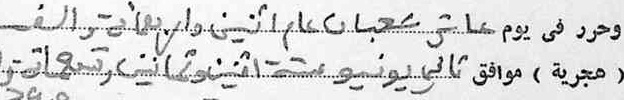 وحرر فى يوم عاشر شعبان عام اثنين وأربعمائة والف
( هجرية ) موافق ثاني يونيو سنة اثنين وثمانين وتسعمائة